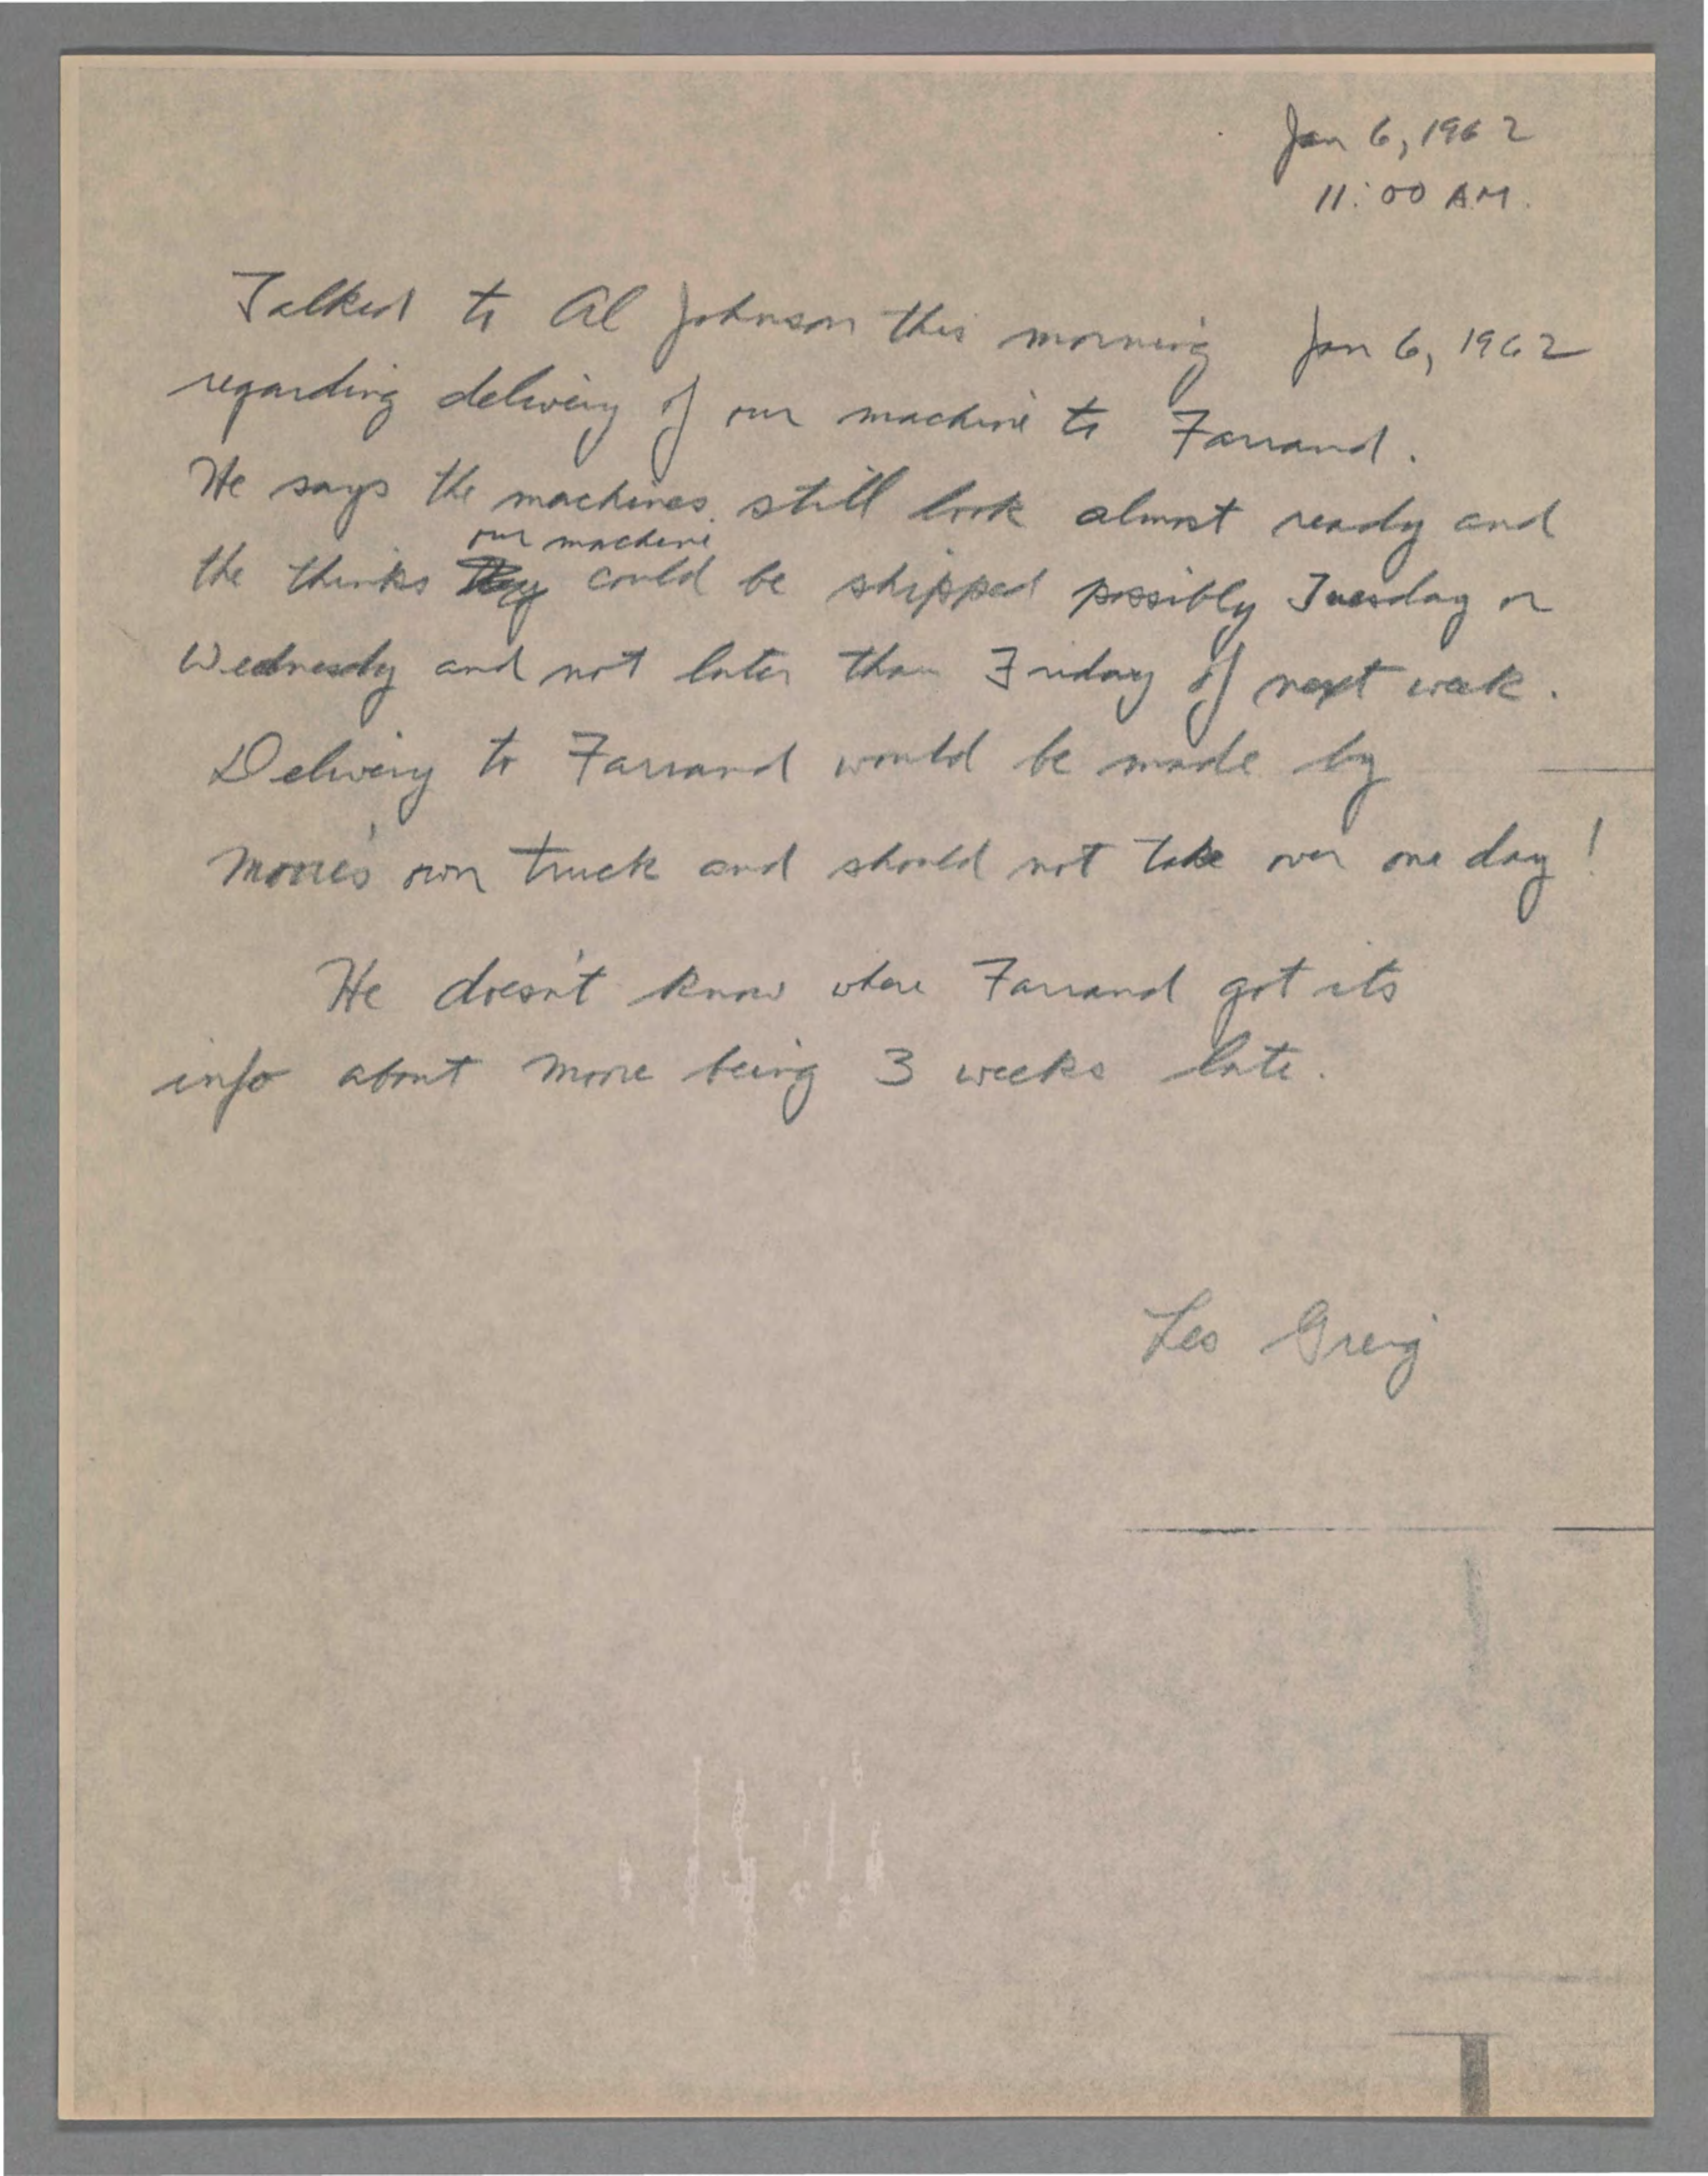 Jan 6, 1962
11:00 AM.
Talked to Al Johnson this morning Jan 6, 1962
regarding delivery of our machine to Farrand.
He says the machines still look almost ready and
our machine
the thinks they could be shipped possibly Tuesday or
Wednesdy and not later than Friday of next week.
Delivery to Farrand would be made by
Moore's own truck and should not take over one day!
He doesn't know where Farrand got its
info about Moore being 3 weeks late.
Les Greig